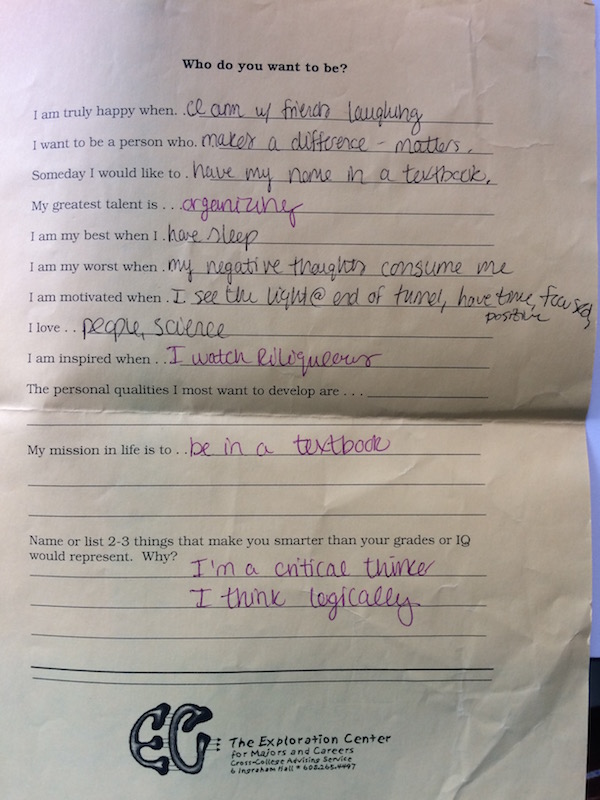 Who do you want to be?
I am truly happy when. . I am w/ friends laughing
I want to be a person who. makes a difference - matters.
Someday I would like to . have my name in a textbook.
My greatest talent is . . . organizing
I am my best when I . have sleep
I am my worst when . my negative thoughts consume me
I am motivated when . I see the light @ end of tunnel, have time, focused,
positive
I love . . people, science
I am inspired when . . I watch
The personal qualities I most want to develop are . . . .
My mission in life is to . . be in a textbook
Name or list 2-3 things that make you smarter than your grades or IQ
would represent. Why?
I'm a critical thinker
I think logically
EC
The Exploration Center
for Majors and Careers
Cross-College Advising Service
6 Ingraham Hall * 608.265.4497